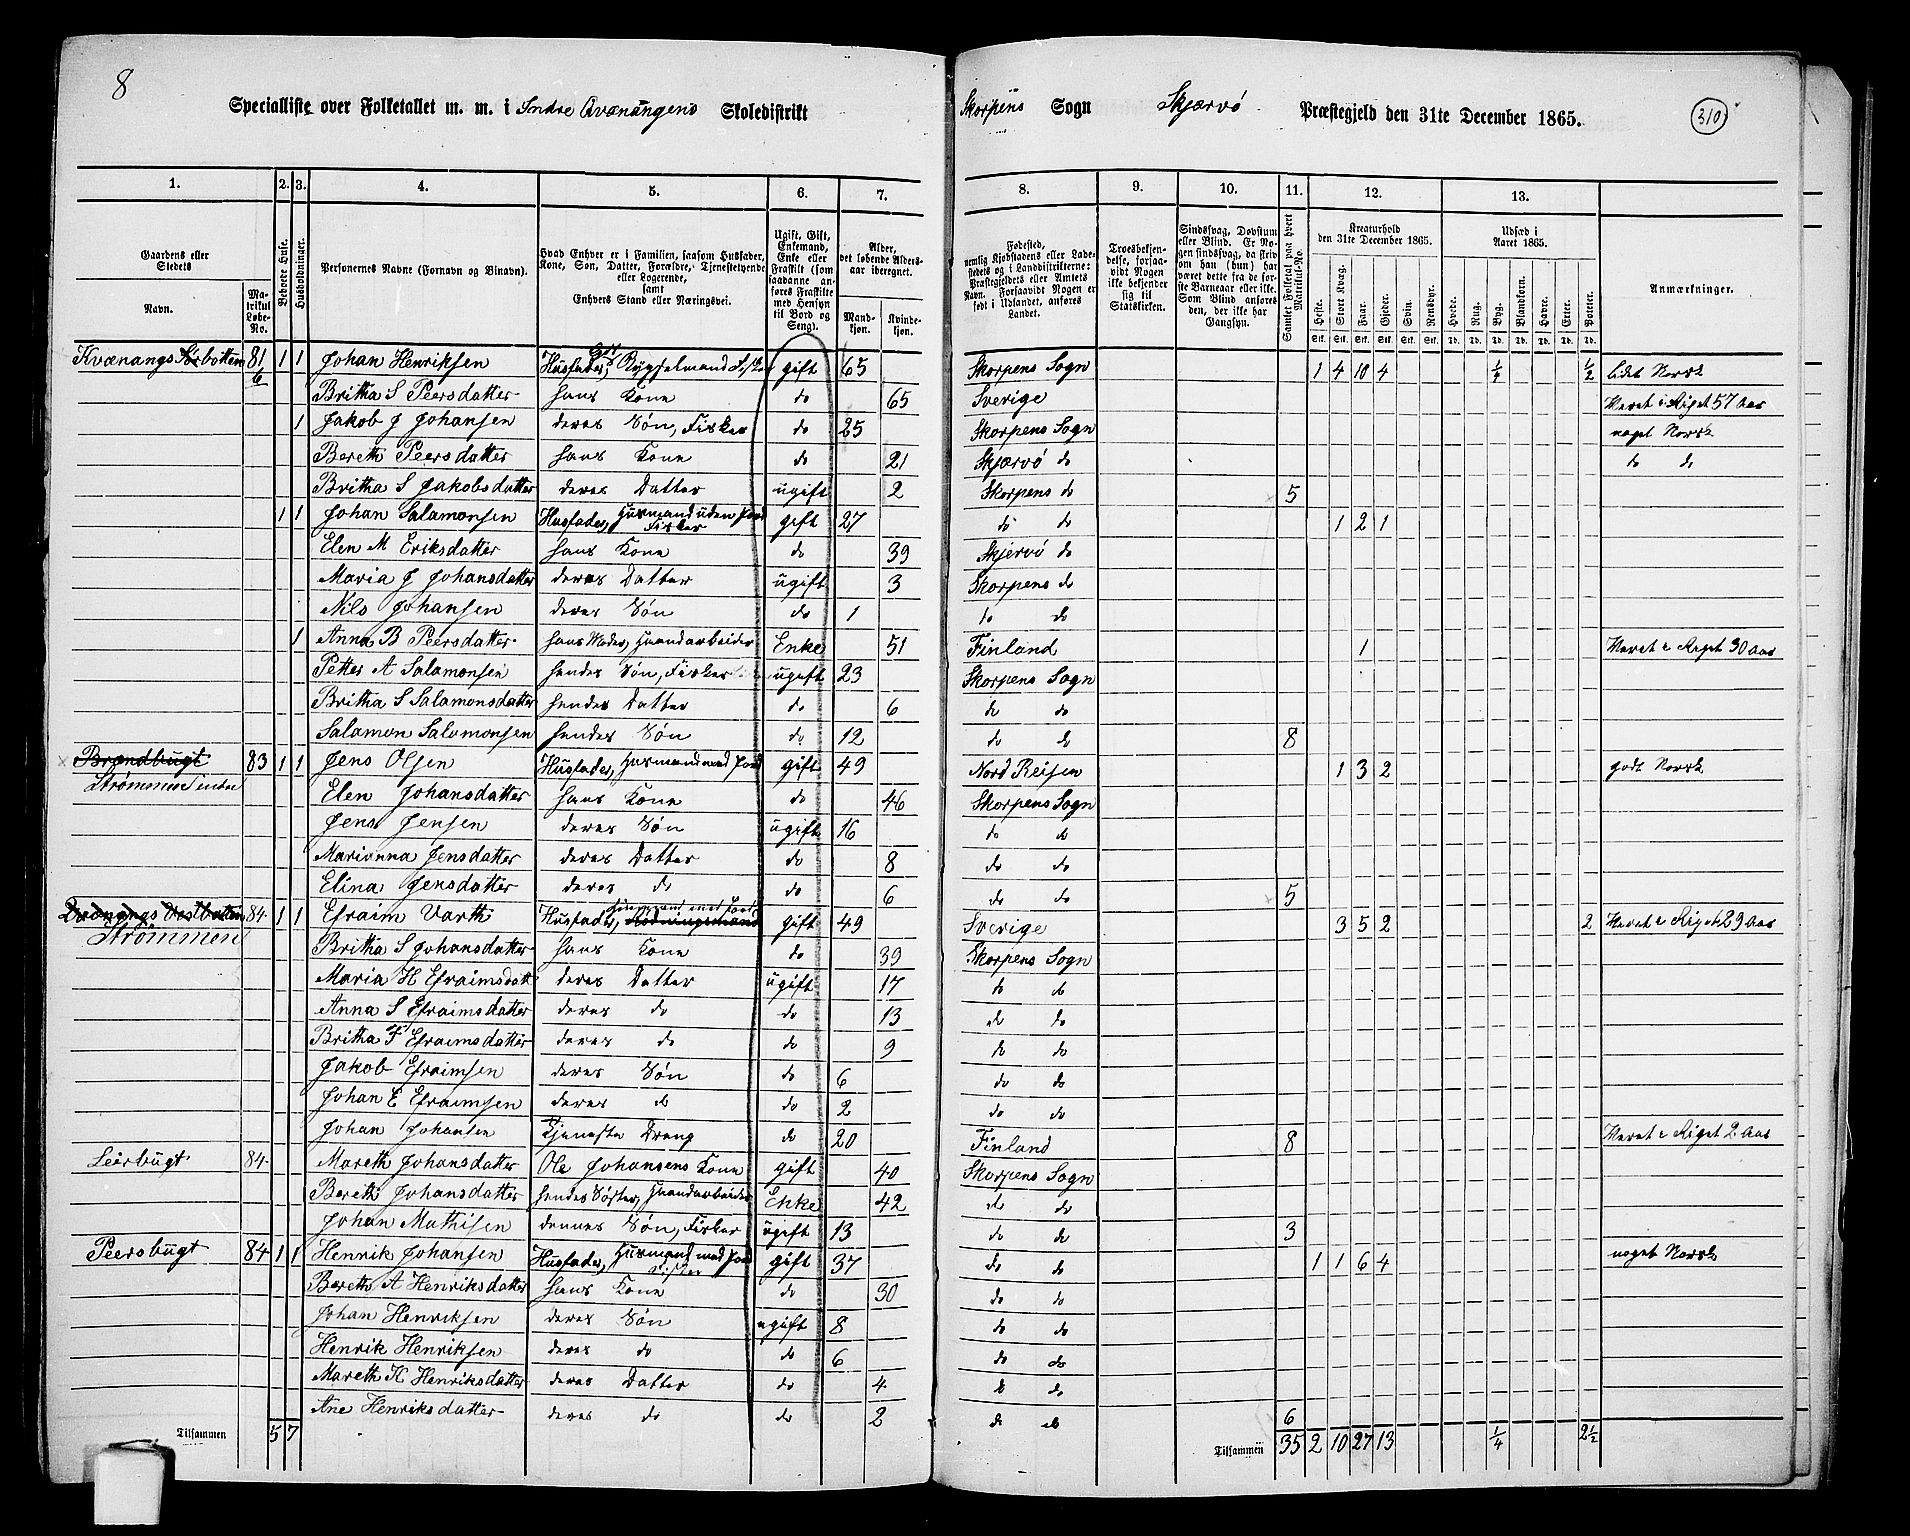 8
Specialliste over Folketallet m. m. i Indre Qvænangens Skoledistrikt Skorpens Sogn Skjærvø Præstegjeld den 31te December 1865. 310
1. 2. 3. 4. 5. 6. 7. 8. 9. 10. 11. 12. 13.
Gaardens eller Stedets Navn. Matrikul Løbe-No. Beboede Huse. Husholdninger. Personernes Navne (Fornavn og Binavn).
Hvad Enhver er i Familien, saasom Husfader, Kone, Søn, Datter, Forældre, Tjenestetyende eller Logerende, samt Enhvers Stand eller Næringsvei.
Ugift, Gift, Enkemand, Enke eller Fraskilt (som saadanne anføres Fraskilte med Hensyn til Bord og Seng).
Alder, det løbende Aldersaar iberegnet. Mandkjøn. Kvindekjøn.
Fødested, nemlig Kjøbstadens eller Ladestedets og i Landdistrikterne: Præstegjeldets eller Amtets Navn. Forsaavidt Nogen er født i Udlandet, anføres Landet.
Troesbekjendelse, forsaavidt Nogen ikke bekjender sig til Statskirken.
Sindssvag, Døvstum eller Blind. Er Nogen sindssvag, da skrives om han (hun) har været det fra de første Barneaar eller ikke. Som Blind anføres den, der ikke har Gangsyn.
Samlet Folketal paa hvert Matrikul-No.
Kreaturhold den 31te December 1865. Heste. Stort Kvæg. Faar. Gjeder. Svin. Rensdyr.
Udsæd i Aaret 1865. Hvede. Rug. Byg. Blandkorn. Havre. Erter. Poteter.
Anmærkninger.
Kvænangs Sørbotten 81/6 1 1 Johan Henriksen Husfader, Rygselmand Fisker gift 65 Skorpens Sogn 1 4 10 4 1/4 1/2 lidt Norsk
Britha S Peersdatter hans Kone do 65 Sverige Været i Riget 57 Aar
1 Jakob J Johansen deres Søn, Fisker do 25 Skorpens Sogn noget Norsk
Bereth Peersdatter hans Kone do 21 Skjærvø do do do
Britha S Jakobsdatter deres Datter ugift 2 Skorpens do 5
1 1 Johan Salamonsen Husfader, Husmand uden Jord Fisker gift 27 do do 1 2 1
Elen M Eriksdatter hans Kone do 39 Skjervø do
Maria J Johansdatter deres Datter ugift 3 Skorpens do
Nils Johansen deres Søn do 1 do do
1 Anna B Peersdatter hans Moder, Haandarbeider Enke 51 Finland 1 Været i Riget 30 Aar
Petter A Salamonsen hendes Søn, Fisker ugift 23 Skorpens Sogn
Britha S Salamonsdatter hendes Datter do 6 do do
Salamon Salomonsen hendes Søn do 12 do do 8
Brændbugt 83 1 1 Jens Olsen Husfader, Husmand med Jord gift 49 Nord Reisen 1 3 2 godt Norsk
Strømmen indre Elen Johansdatter hans Kone do 46 Skorpens Sogn
Jens Jensen deres Søn ugift 16 do do
Marianna Jensdatter deres Datter do 8 do do
Elina Jensdatter deres do do 6 do do 5
Qvænangs Vestbotten 84 1 1 Efraim Varth Husfader, Husmand med Jord gift 49 Sverige 3 5 2 2 Været i Riget 29 Aar
Strømmen Britha S Johansdatter hans Kone do 39 Skorpens Sogn
Maria H Efraimsdatt deres Datter ugift 17 do do
Anna S Efraimsdatter deres do do 13 do do
Britha F Efraimsdatter deres do do 9 do do
Jakob Efraimsen deres Søn do 6 do do
Johan E Efraimsen deres do do 2 do do
Johan Johansen Tjeneste Dreng do 20 Finland 8 Været i Riget 2 Aar
Leirbugt 84 Mareth Johansdatter Ole Johansens Kone gift 40 Skorpens Sogn
Bereth Johansdatter hendes Søster, Haandarbeider Enke 42 do do
Johan Mathisen dennes Søn, Fisker ugift 13 do do 3
Peersbugt 84 1 1 Henrik Johansen Husfader, Husmand med Jord Fisker gift 37 do do 1 1 6 4 noget Norsk
Bereth A Henriksdatter hans Kone do 30 do do
Johan Henriksen deres Søn ugift 8 do do
Henrik Henriksen deres do do 6 do do
Mareth K Henriksdatter deres Datter do 4 do do
Ane Henriksdatter deres do do 2 do do 6
Tilsammen 5 7 Tilsammen 35 2 10 27 13 1/4 2 1/2